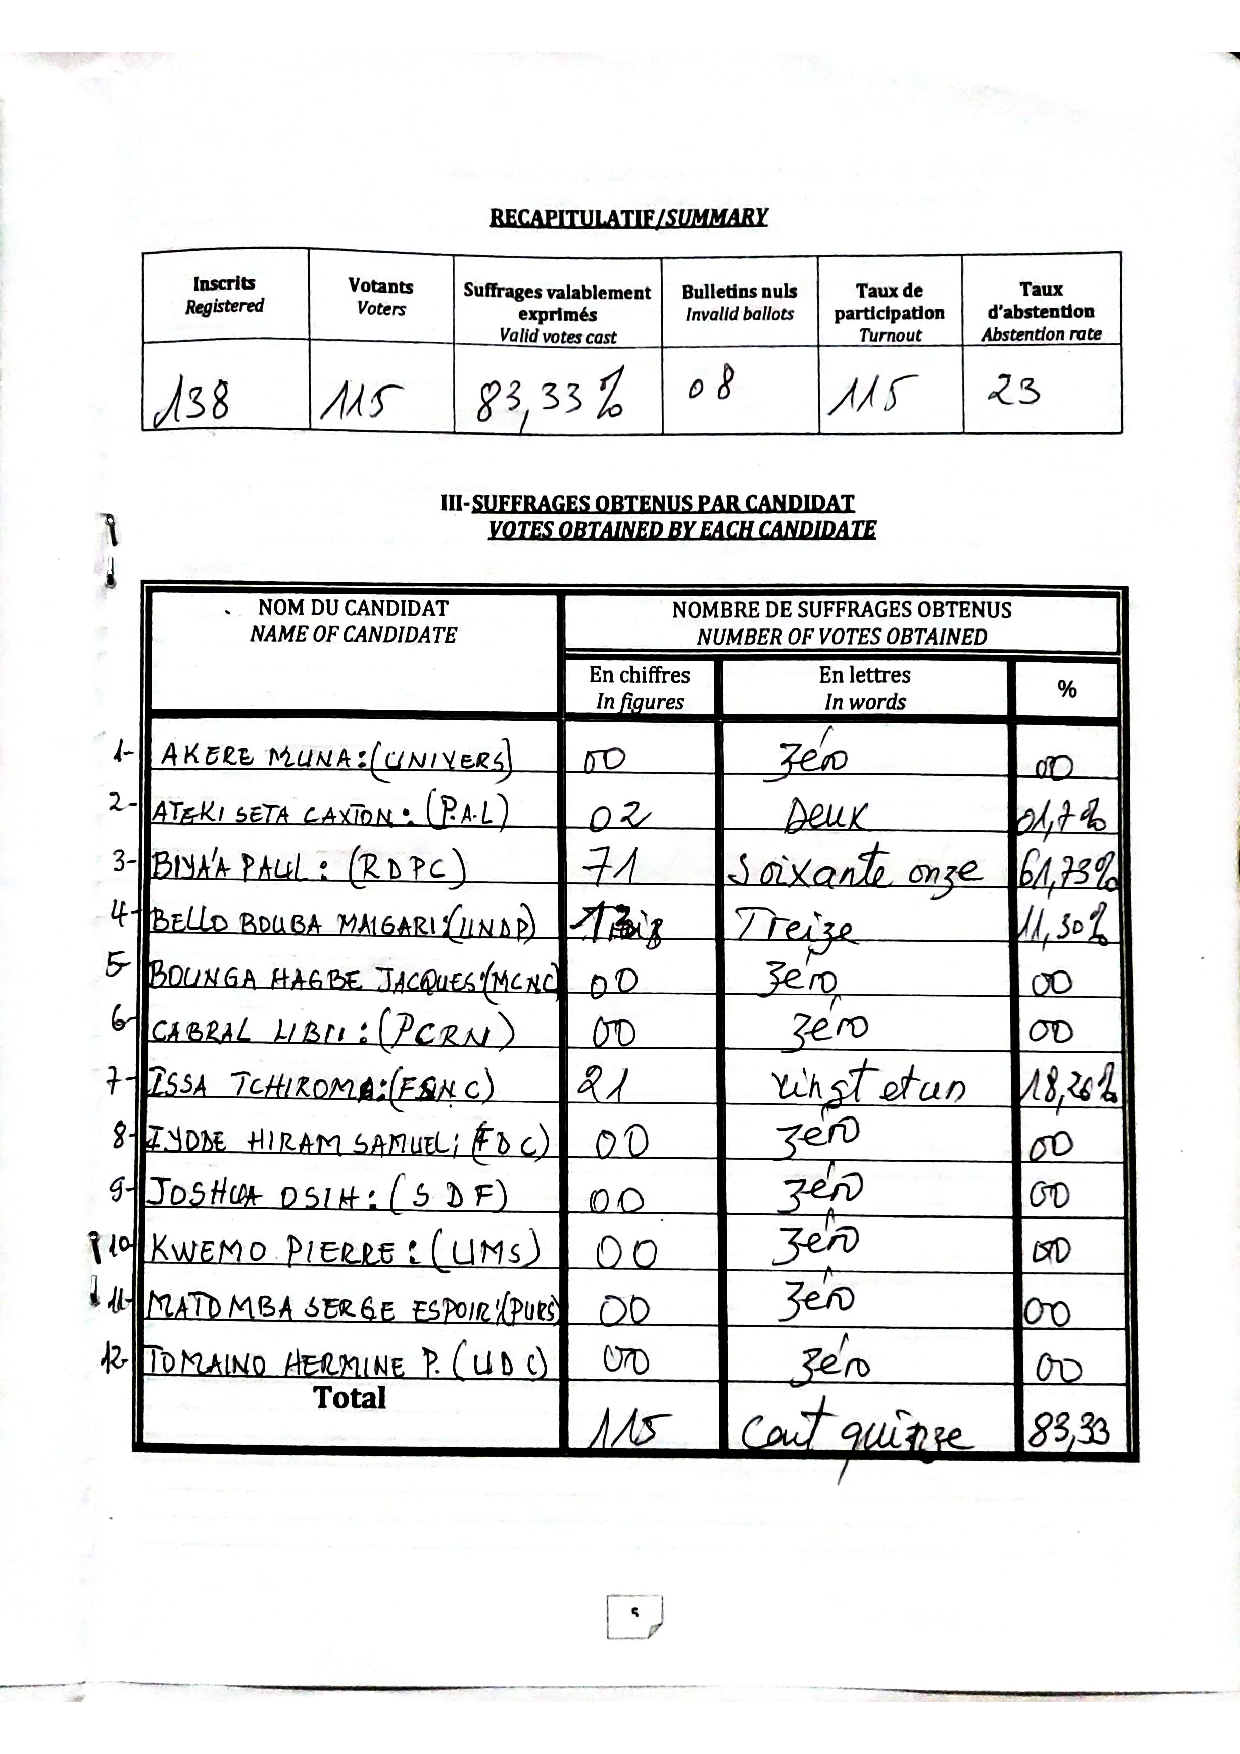 RECAPITULATIF/SUMMARY
Inscrits Registered | Votants Voters | Suffrages valablement exprimés Valid votes cast | Bulletins nuls Invalid ballots | Taux de participation Turnout | Taux d'abstention Abstention rate
138 | 115 | 83,33% | 08 | 115 | 23
III-SUFFRAGES OBTENUS PAR CANDIDAT
VOTES OBTAINED BY EACH CANDIDATE
NOM DU CANDIDAT NAME OF CANDIDATE | NOMBRE DE SUFFRAGES OBTENUS NUMBER OF VOTES OBTAINED
En chiffres In figures | En lettres In words | %
1- AKERE MUNA:(UNIVERS) | 00 | Zéro | 00
2- ATEKI SETA CAXTON: (P.A.L) | 02 | Deux | 01,7%
3- BIYA'A PAUL: (RDPC) | 71 | Soixante onze | 61,73%
4- BELLO BOUBA MAIGARI:(UNDP) | 13 | Treize | 11,30%
5- BOUNGA HAGBE JACQUES:(MCNC) | 00 | Zéro | 00
6- CABRAL LIBII: (PCRN) | 00 | Zéro | 00
7- ISSA TCHIROMA:(FSNC) | 21 | vingt et un | 18,26%
8- IYODE HIRAM SAMUEL; (FDC) | 00 | Zéro | 00
9- JOSHUA OSIH: (SDF) | 00 | Zéro | 00
10- KWEMO PIERRE: (UMS) | 00 | Zéro | 00
11- MATOMBA SERGE ESPOIR:(PURS) | 00 | Zéro | 00
12- TOMAINO HERMINE P. (UDC) | 00 | Zéro | 00
Total | 115 | Cent quinze | 83,33
5